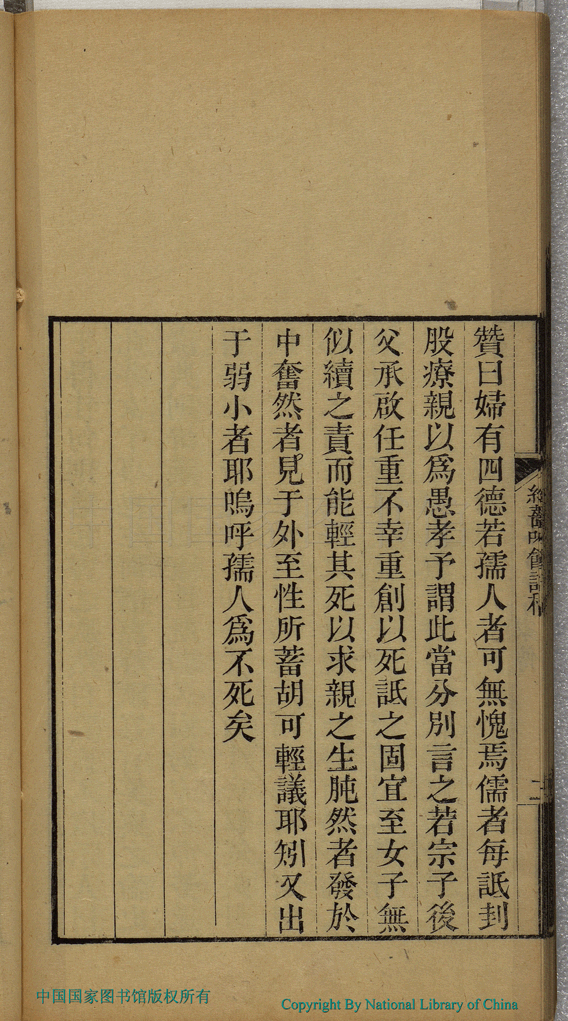 贊曰婦有四德若孺人者可無愧焉儒者每詆刲
股療親以爲愚孝予謂此當分別言之若宗子後
父承啟任重不幸重創以死詆之固宜至女子無
似續之責而能輕其死以求親之生肫然者發於
中奮然者見于外至性所蓄胡可輕議耶矧又出
于弱小者耶嗚呼孺人爲不死矣
二
中国国家图书馆版权所有
Copyright By National Library of China